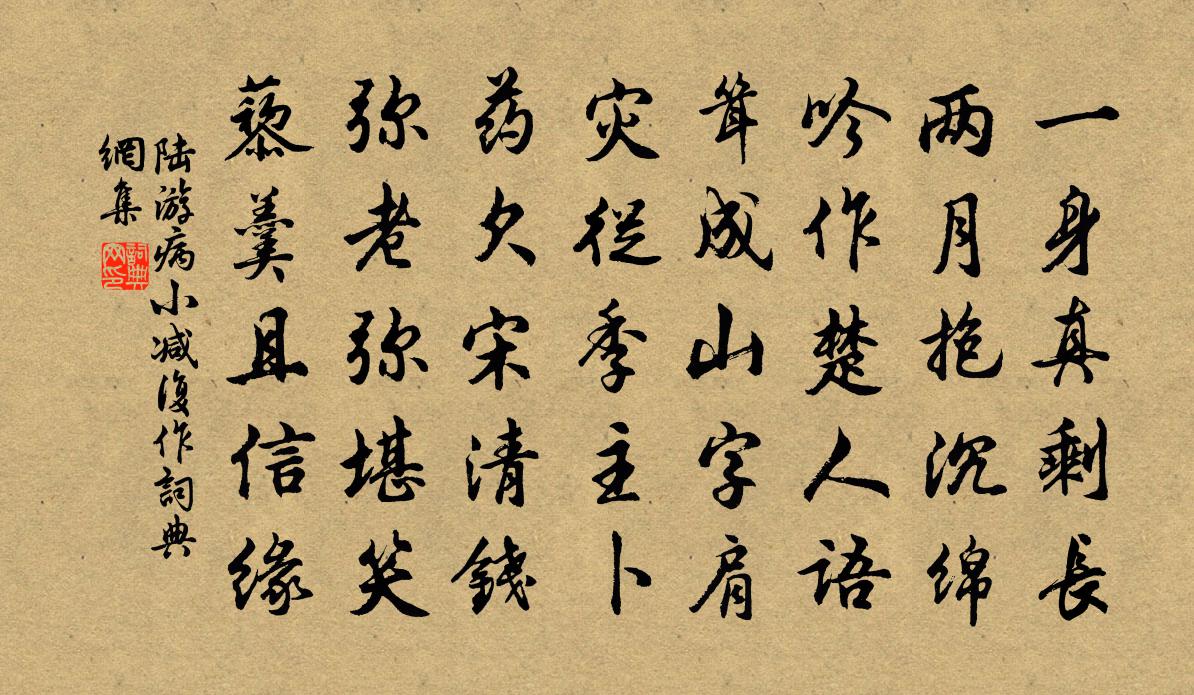 一身真剩長
两月抱沉绵
吟作楚人語
耸成山字肩
灾從季主卜
药欠宋清錢
弥老弥堪笑
藜羹且信缘
陆游病小减復作詞典
網集
詞典
网印